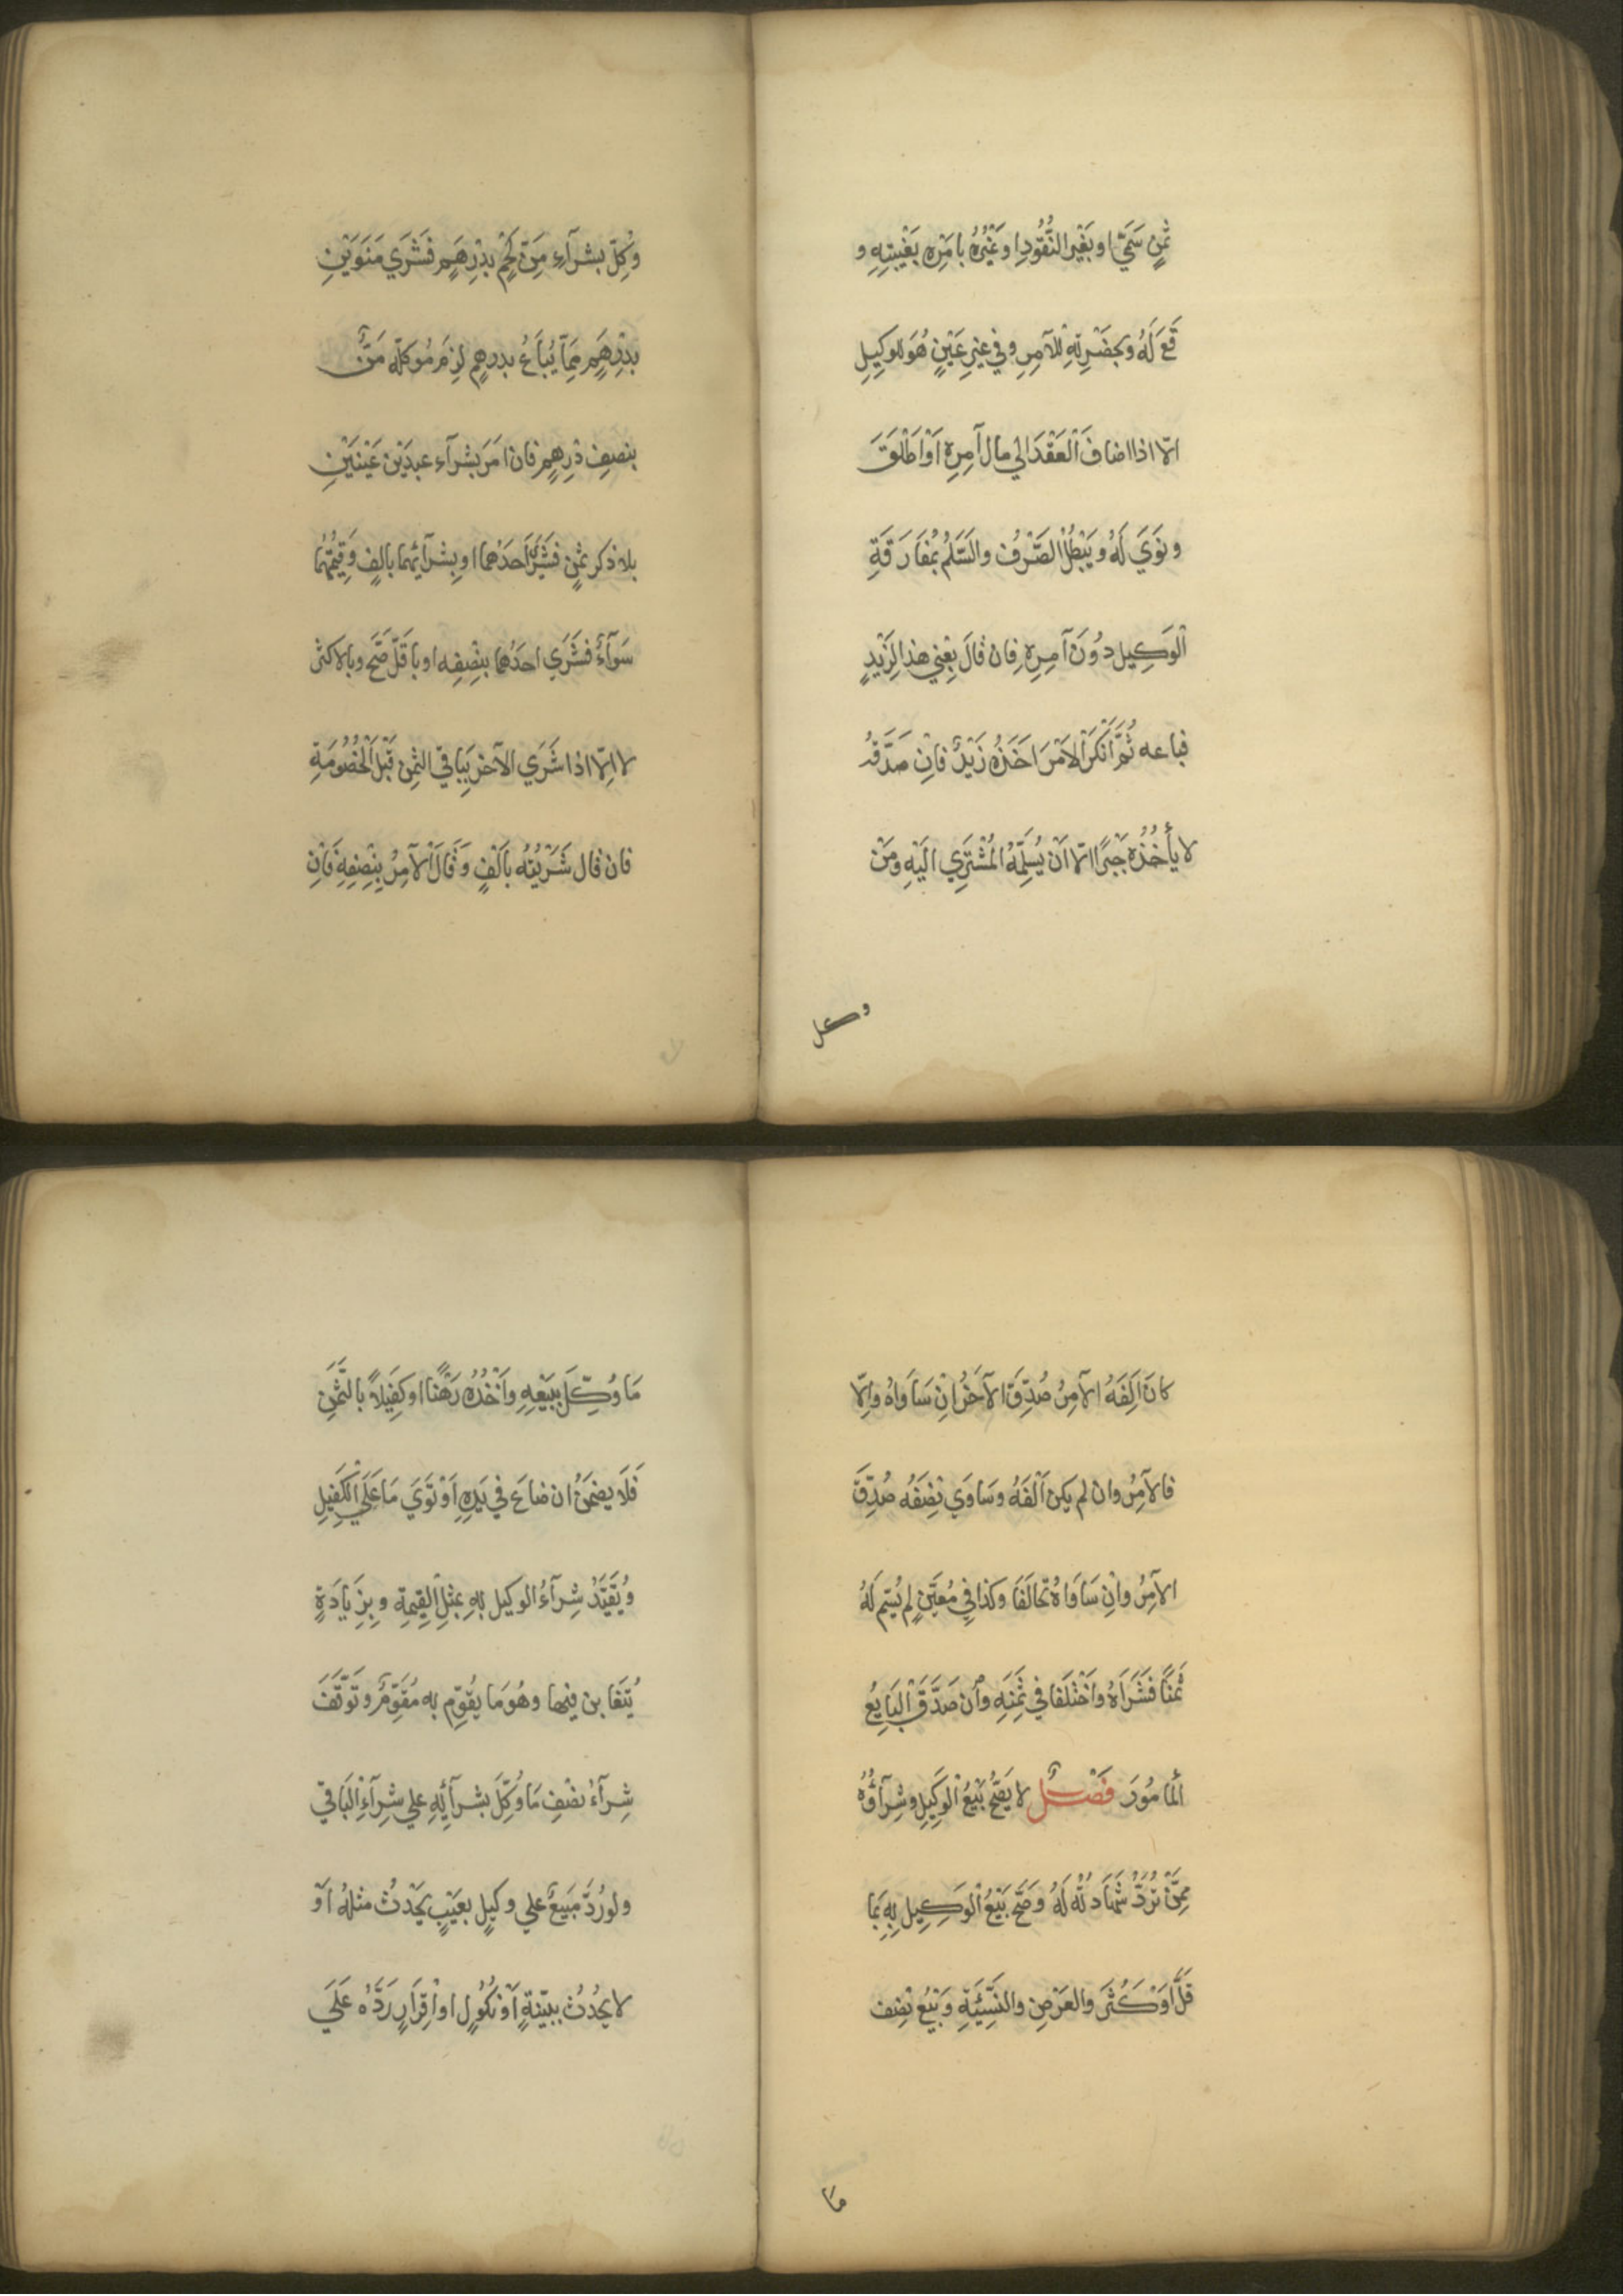 ثَمَنٍ سَمّيَ او بغَيْرِ النُّقُودِ اوغَيْرُهُ بامْرِه بغَيْبتِهِ و
قَعَ لَهُ وبحَضْرتِهِ لْلآمِرِ وفي غيرِ عَيْنٍ هُوَ للوكِيِلِ
الّا اذا اضافَ الْعَقْدَ الي مال آمِرِه اَوْ اطْلَقَ
ونَوَي لَهُ ويَبْطُلُ الصّرْفُ والسّلَمُ بمُفَارَقَةِ
الْوَكِيلِ دُوْنَ آمِرِه فان قالَ بِعْنِي هذا لِزَيْدٍ
فباعه ثُمَّ اَنْكَرَ الاَمْرَ اَخَذَهُ زَيْدٌ فانِ صَدَّقهُ
لا يأخُذُه جَبْرًا الّا اَنْ يُسَلِّمَهُ المُشْتَرِي الَيْهِ ومَنْ
وكل
وُكِلّ بشرآءِ مَنّ لَحْمٍ بدِرْهَمٍ فَشَرَي مَنَوَيْنِ
بدِرْهَمٍ مِمّا يُبَاعُ بدرهمٍ لزِمَ مُوَكلّه مَنٌّ
بنصِفِ دْرِهمٍ فان اَمَرَ بشرآءِ عبدَيْن عَيْنَيْنِ
بلا ذكر ثمنٍ فشَرَي اَحَدَهما او بِشرآئِهما بالِفٍ وَقِيْمَتُهُما
سَوَآءٌ فشَرَي احَدَهُما بنِصِفِه او باَقَلّ صَحّ وبالاكثرَ
لا الّا اذا شَرَي الآخرَ ببَاقي الثمِنِ قَبْلَ الْخُصُوُمَةِ
فان قال شَرَيْتُه باَلْفٍ وَقَالَ الآمِرُ بِنِصِفِهِ فَاْنِ
كانَ اَلِفَهُ الآمِرُ صُدِّقَ الآخَرُ انْ سَاوَاهُ والِاّ
فالآمِرُ وان لم يكن اَلْفَهُ وسَاوَي نِصْفَهُ صُدِّقَ
الآمِرُ وانِ سَاوَاهُ تحالَفَا وكذا فيِ مُعَيّنٍ لم يُسَمِ لَهُ
ثمَنًا فَشَرَاهُ واَخْتَلفا في ثمَنِهِ واْن صَدَّقَ الْبَايِعُ
الْمَامُوُرَ فَصْلٌ لا يَصِحُّ بَيْعُ الْوَكِيِلِ وشِرآؤُهُ
مِمّنْ تُرَدُّ شَهَادَتُه لَهُ وَصَحّ بَيْعُ الْوَكِيِلِ بِهِ بمَا
قَلَّ اَوْ كَثُرَ والعَرْضِ والنَّسِّيْئَةِ وَبَيْعُ نِصْفِ
ما
مَا وُكِّلَ ببَيْعِهِ واَخْذُه رَهْنًا او كفِيْلاً بالثّمَنِ
فَلَا يضْمَنُ ان ضاعَ في يَدِهِ اَوْ تَوَيَ مَا عَلَي الْكَفِيْلِ
ويُقَيّدُ شِرآءُ الوكِيل بِهِ بمثْلِ القِيمِةِ وبزِيَادَةٍ
يُتَغَا بن فيها وهُوَ مَا يُقوِّم به مُقَوِّمٌ وتَوَقّفَ
شِرآءُ نصْفِ مَا وُكِّلَ بشرآئِهِ علي شِرآءِ الْبَاقيِ
ولو رُدَّ مَبيْعٌ علي وكِيْلٍ بعَيْبٍ يَحْدُثُ مثلُهُ اَوْ
لا يَحْدُثُ ببيّنَةٍ اَوْ نُكُوْلٍ او اْقِرَارٍ رَدَّهُ عَلَي